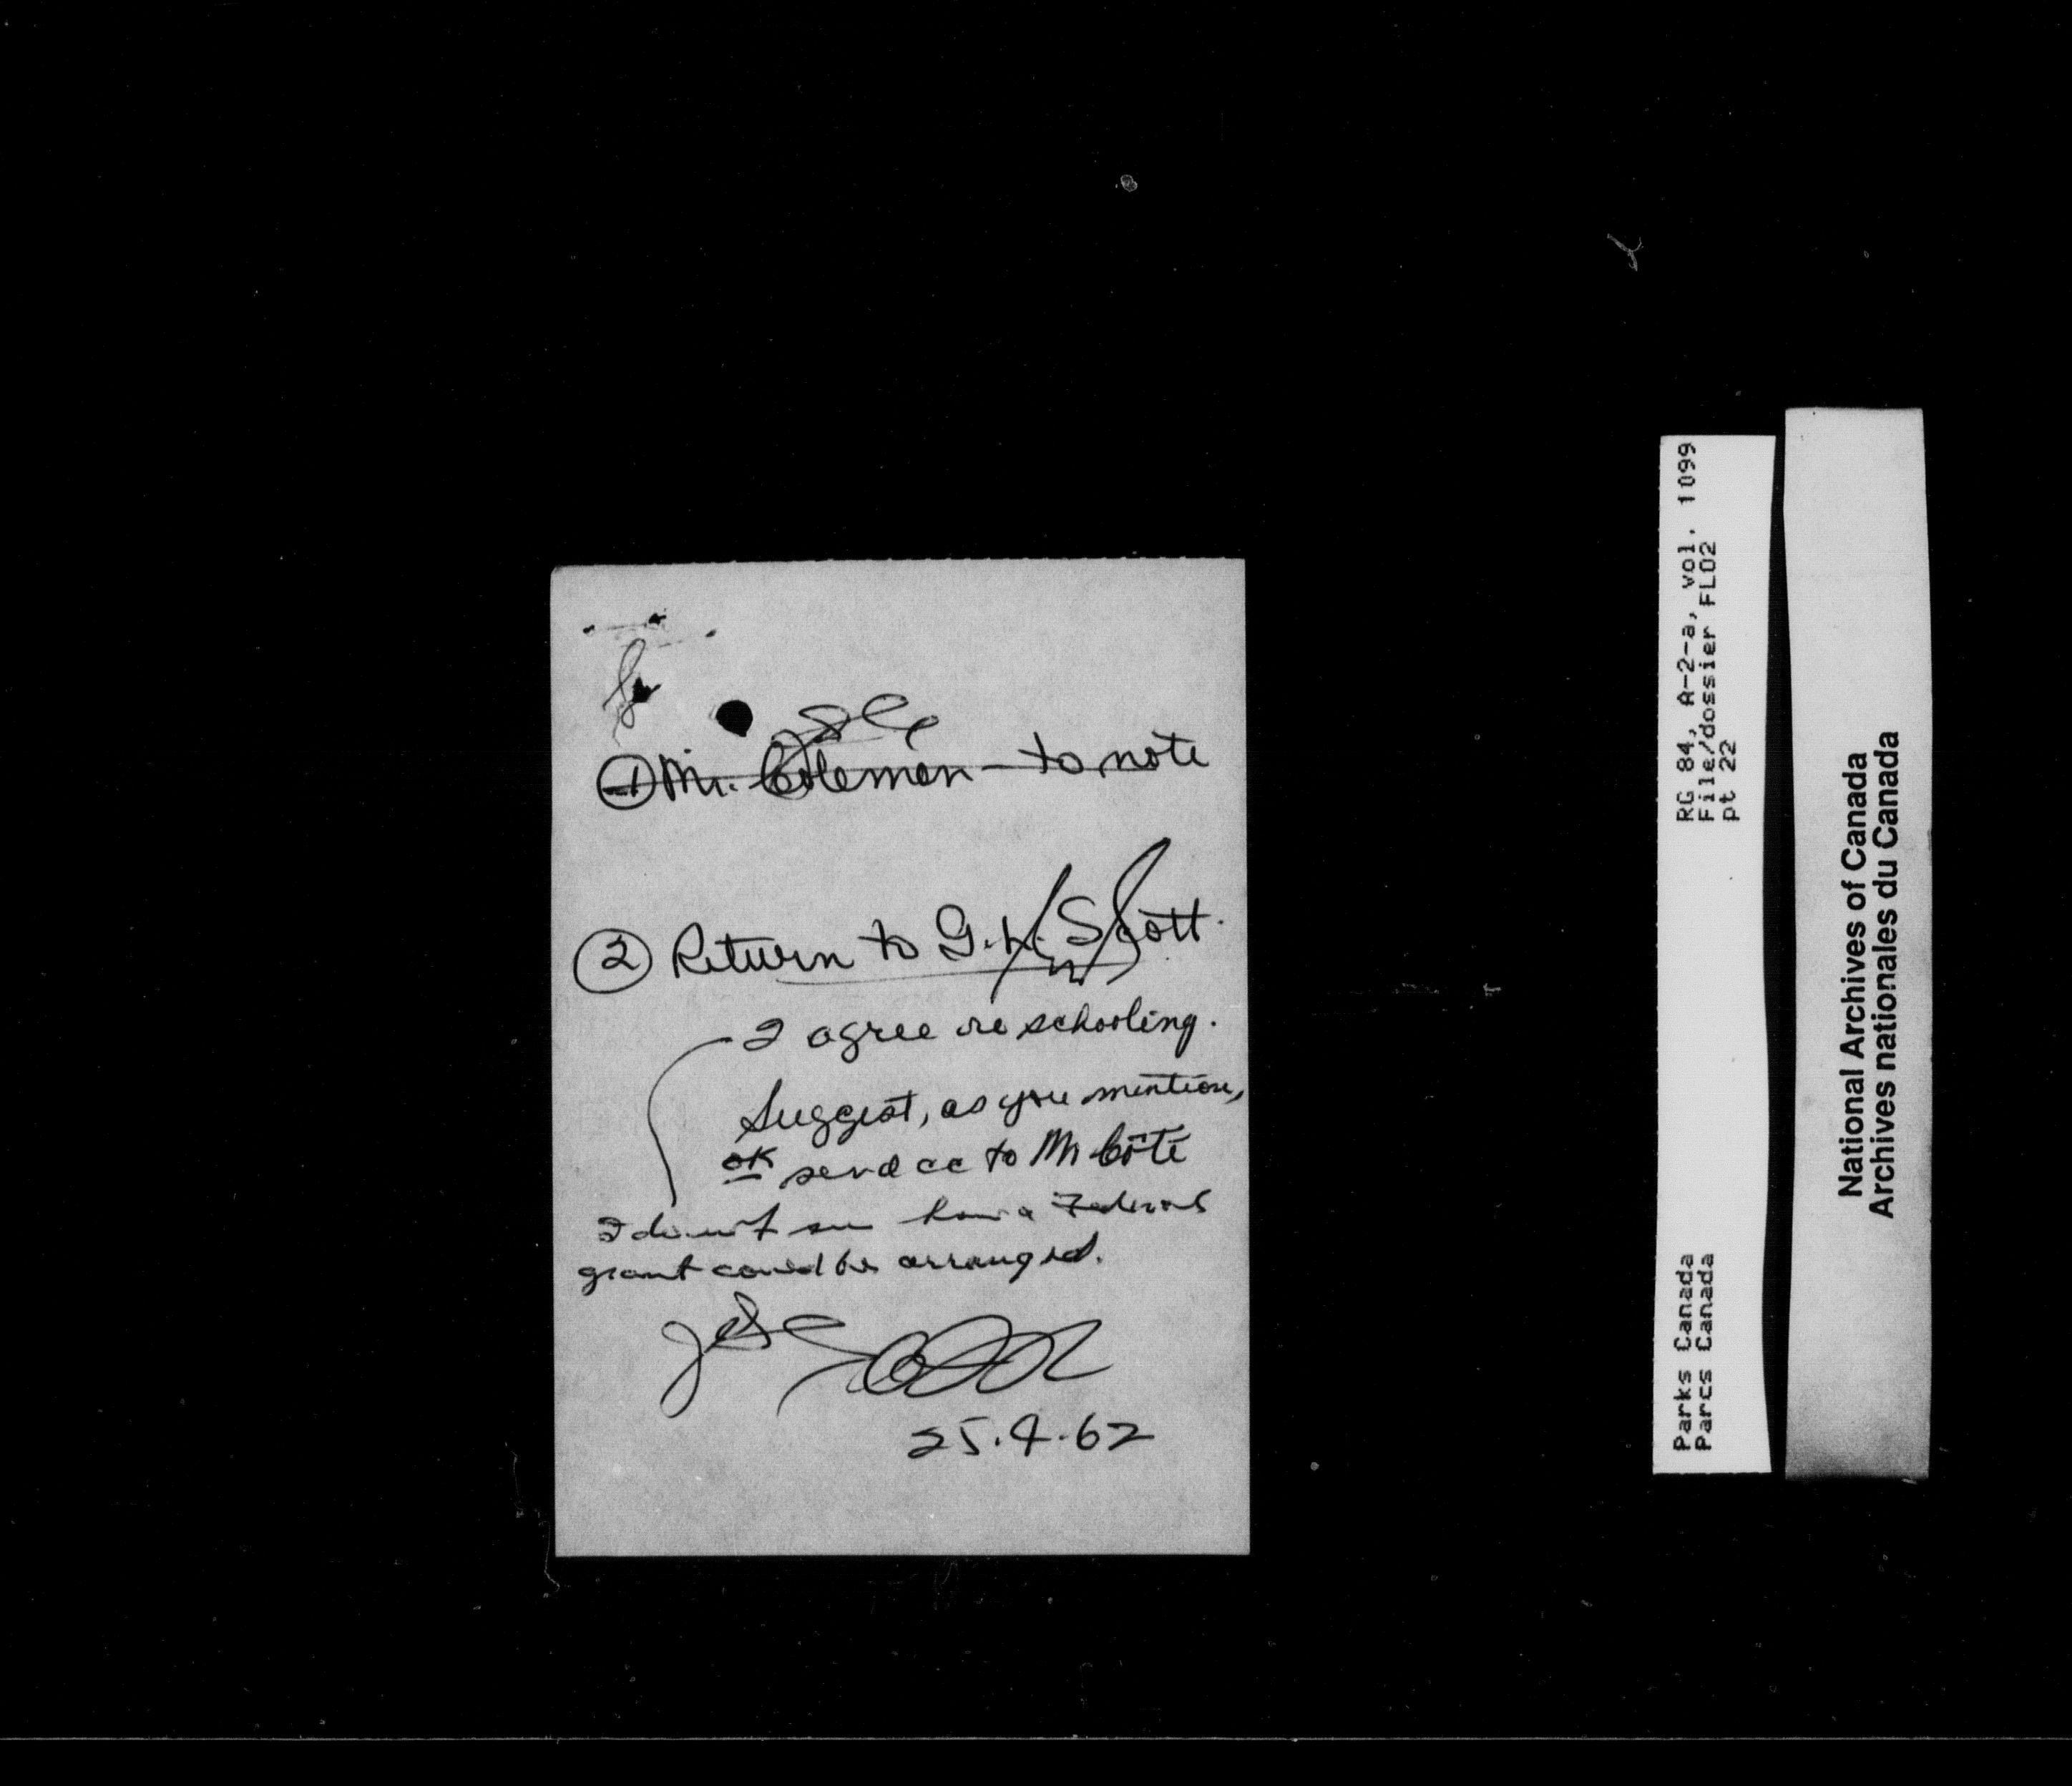 ① Mr. Coleman - to note
② Return to G.L. Scott.
I agree re schooling.
Suggest, as you mention,
OK send cc to Mr Côté
I do not see how a Federal
grant could be arranged.
25.4.62
RG 84, A-2-a, vol. 1099
File/dossier FLO2
pt 22
Parks Canada
Parcs Canada
National Archives of Canada
Archives nationales du Canada